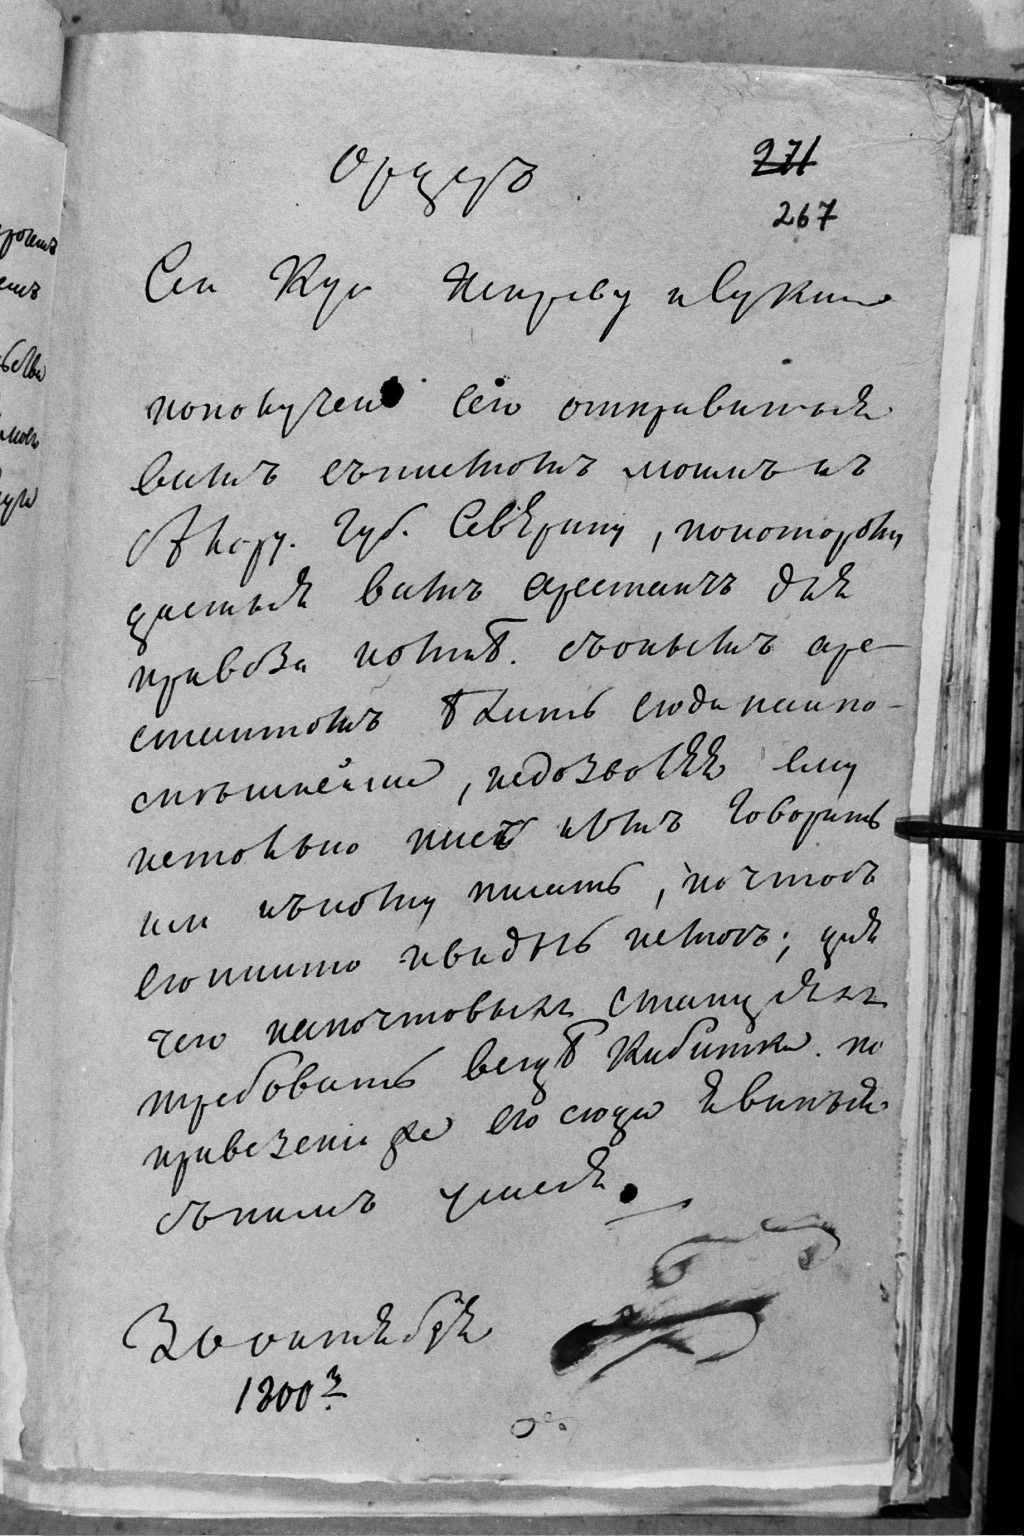 Ордеръ
271
267
Сен Кур Петрову и Лукин
пополучени сего отправитьсѧ
вамъ съписмомъ моимъ къ
Губ. Северину, покоторому
дастьсѧ вамъ арестантъ длѧ
привоза с онымъ аре-
стантомъ ѣхать сюда наипо-
спѣшнейше, недозволѧѧ ему
нетолько ни с кѣмъ говорить
или къкому писать, но чтобъ
его никто и видѣть немогъ; длѧ
чего напочтовыхъ станцѧхъ
требовать везде Кибитки. по
привезени же его сюда ѧвитьсѧ
съ нимъ
30 октѧбрѧ
1800 г